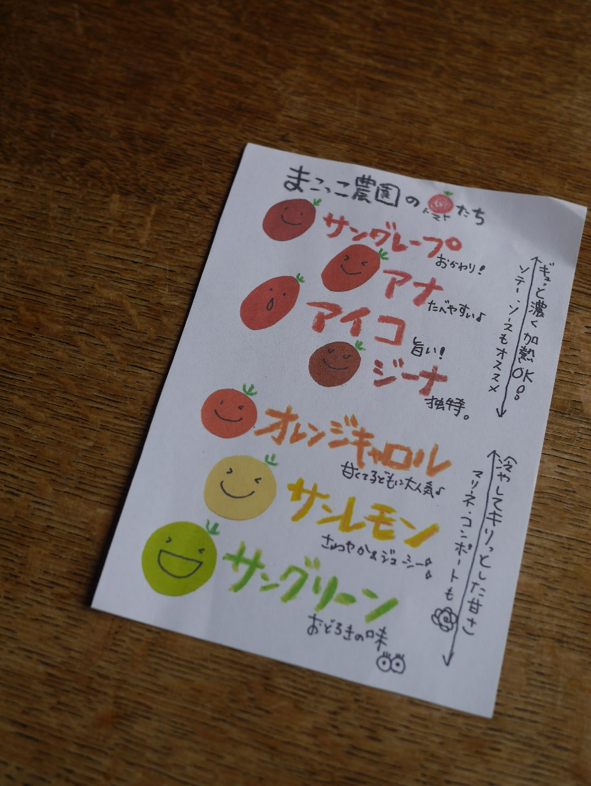 まこっこ農園のトマトたち
サングレープ
おかわり!
アナ
たべやすい♪
アイコ
旨い!
ジーナ
独特。
オレンジキャロル
甘くて子どもに大人気♪
サンレモン
さわやか&ジューシー
サングリーン
おどろきの味
ギュッと濃く加熱OK!
ソテー・ソースもオススメ
冷やしてキリッとした甘さ
マリネ・コンポートも